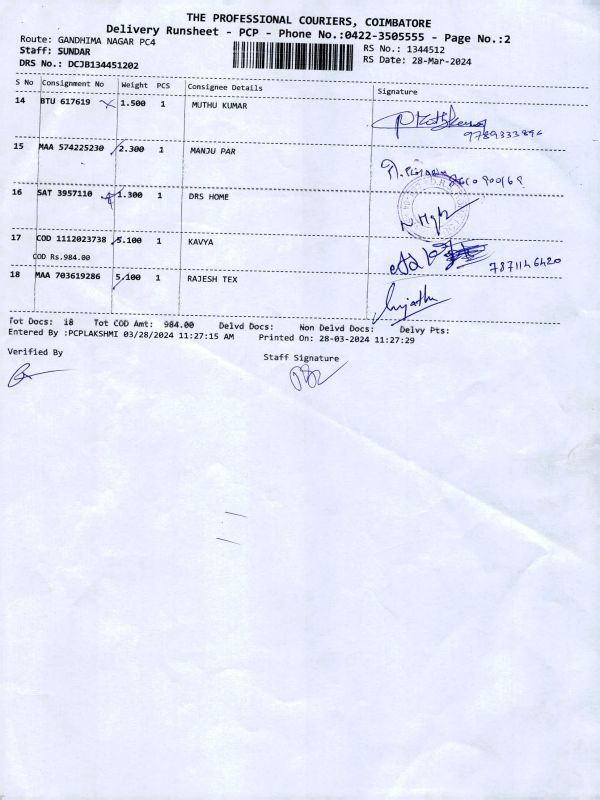 THE PROFESSIONAL COURIERS, COIMBATORE
Delivery Runsheet - PCP - Phone No.:0422-3505555 - Page No.:2
Route: GANDHIMA NAGAR PC4 RS No.: 1344512
Staff: SUNDAR RS Date: 28-Mar-2024
DRS No.: DCJB134451202
S No Consignment No Weight PCS Consignee Details Signature
14 BTU 617619 1.500 1 MUTHU KUMAR
9789333894
15 MAA 574225230 2.300 1 MANJU PAR
16 SAT 3957110 1.300 1 DRS HOME
17 COD 1112023738 5.100 1 KAVYA
COD Rs.984.00 7871146420
18 MAA 703619286 5.100 1 RAJESH TEX
Tot Docs: 18 Tot COD Amt: 984.00 Delvd Docs: Non Delvd Docs: Delvy Pts:
Entered By :PCPLAKSHMI 03/28/2024 11:27:15 AM Printed On: 28-03-2024 11:27:29
Verified By Staff Signature